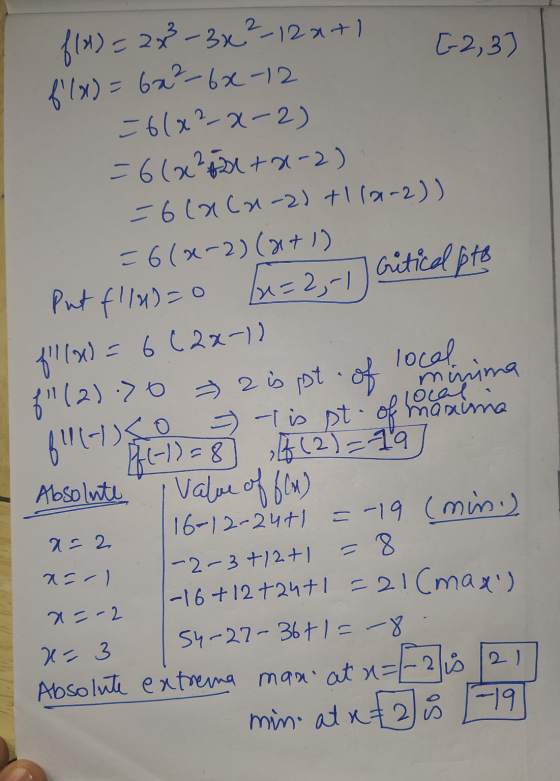 f(x) = 2x³ - 3x² - 12x + 1 [-2, 3]
f'(x) = 6x² - 6x - 12
= 6(x² - x - 2)
= 6(x² - 2x + x - 2)
= 6(x(x - 2) + 1(x - 2))
= 6(x - 2)(x + 1)
Put f'(x) = 0 x = 2, -1 Critical pts
f''(x) = 6(2x - 1)
f''(2) > 0 ⇒ 2 is pt. of local minima
f''(-1) < 0 ⇒ -1 is pt. of local maxima
f(-1) = 8, f(2) = -19
Absolute Value of f(x)
x = 2 16 - 12 - 24 + 1 = -19 (min.)
x = -1 -2 - 3 + 12 + 1 = 8
x = -2 -16 + 12 + 24 + 1 = 21 (max.)
x = 3 54 - 27 - 36 + 1 = -8
Absolute extrema max. at x = -2 is 21
min. at x = 2 is -19